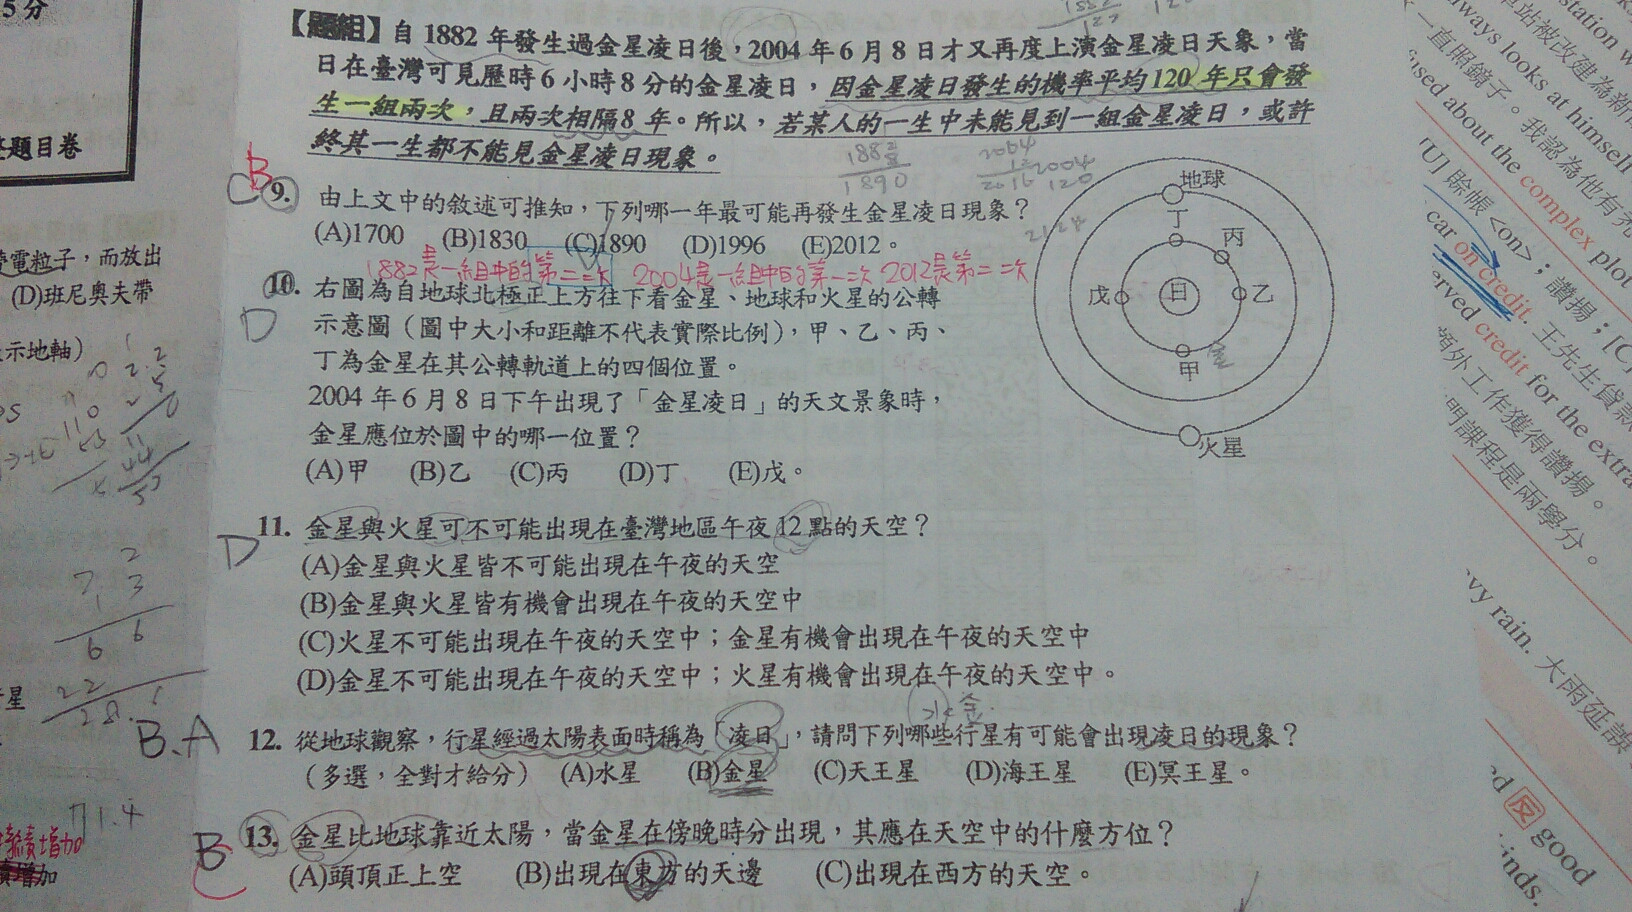 5分
題目卷
【題組】自 1882 年發生過金星凌日後，2004 年 6 月 8 日才又再度上演金星凌日天象，當
日在臺灣可見歷時 6 小時 8 分的金星凌日，因金星凌日發生的機率平均 120 年只會發
生一組兩次，且兩次相隔 8 年。所以，若某人的一生中未能見到一組金星凌日，或許
終其一生都不能見金星凌日現象。
1882
8
1890
2004
120
2124
B
C
9. 由上文中的敘述可推知，下列哪一年最可能再發生金星凌日現象？
(A)1700 (B)1830 (C)1890 (D)1996 (E)2012。
1882是一組中的第二次 2004是一組中的第一次 2012是第二次
D
10. 右圖為自地球北極正上方往下看金星、地球和火星的公轉
示意圖（圖中大小和距離不代表實際比例），甲、乙、丙、
丁為金星在其公轉軌道上的四個位置。
2004 年 6 月 8 日下午出現了「金星凌日」的天文景象時，
金星應位於圖中的哪一位置？
(A)甲 (B)乙 (C)丙 (D)丁 (E)戊。
地球
丁
丙
戊
日
乙
甲
金
火星
D
11. 金星與火星可不可能出現在臺灣地區午夜 12 點的天空？
(A)金星與火星皆不可能出現在午夜的天空
(B)金星與火星皆有機會出現在午夜的天空中
(C)火星不可能出現在午夜的天空中；金星有機會出現在午夜的天空中
(D)金星不可能出現在午夜的天空中；火星有機會出現在午夜的天空中。
水金
B.A
12. 從地球觀察，行星經過太陽表面時稱為「凌日」，請問下列哪些行星有可能會出現凌日的現象？
（多選，全對才給分） (A)水星 (B)金星 (C)天王星 (D)海王星 (E)冥王星。
B
C
13. 金星比地球靠近太陽，當金星在傍晚時分出現，其應在天空中的什麼方位？
(A)頭頂正上空 (B)出現在東方的天邊 (C)出現在西方的天空。
帶電粒子，而放出
(D)班尼奧夫帶
示地軸）
星
增加
增加
station w
車站被改建為新
ways looks at himself
一直照鏡子。我認為他有
used about the complex plot
[U] 賒帳 <on>；讚揚；[C]
car on credit. 王先生貸款
served credit for the extra
額外工作獲得讚揚。
門課程是兩學分。
vy rain. 大雨延誤
反 good
inds.